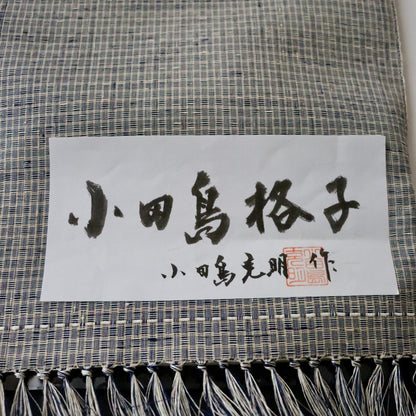 小田島格子
小田島克明 作